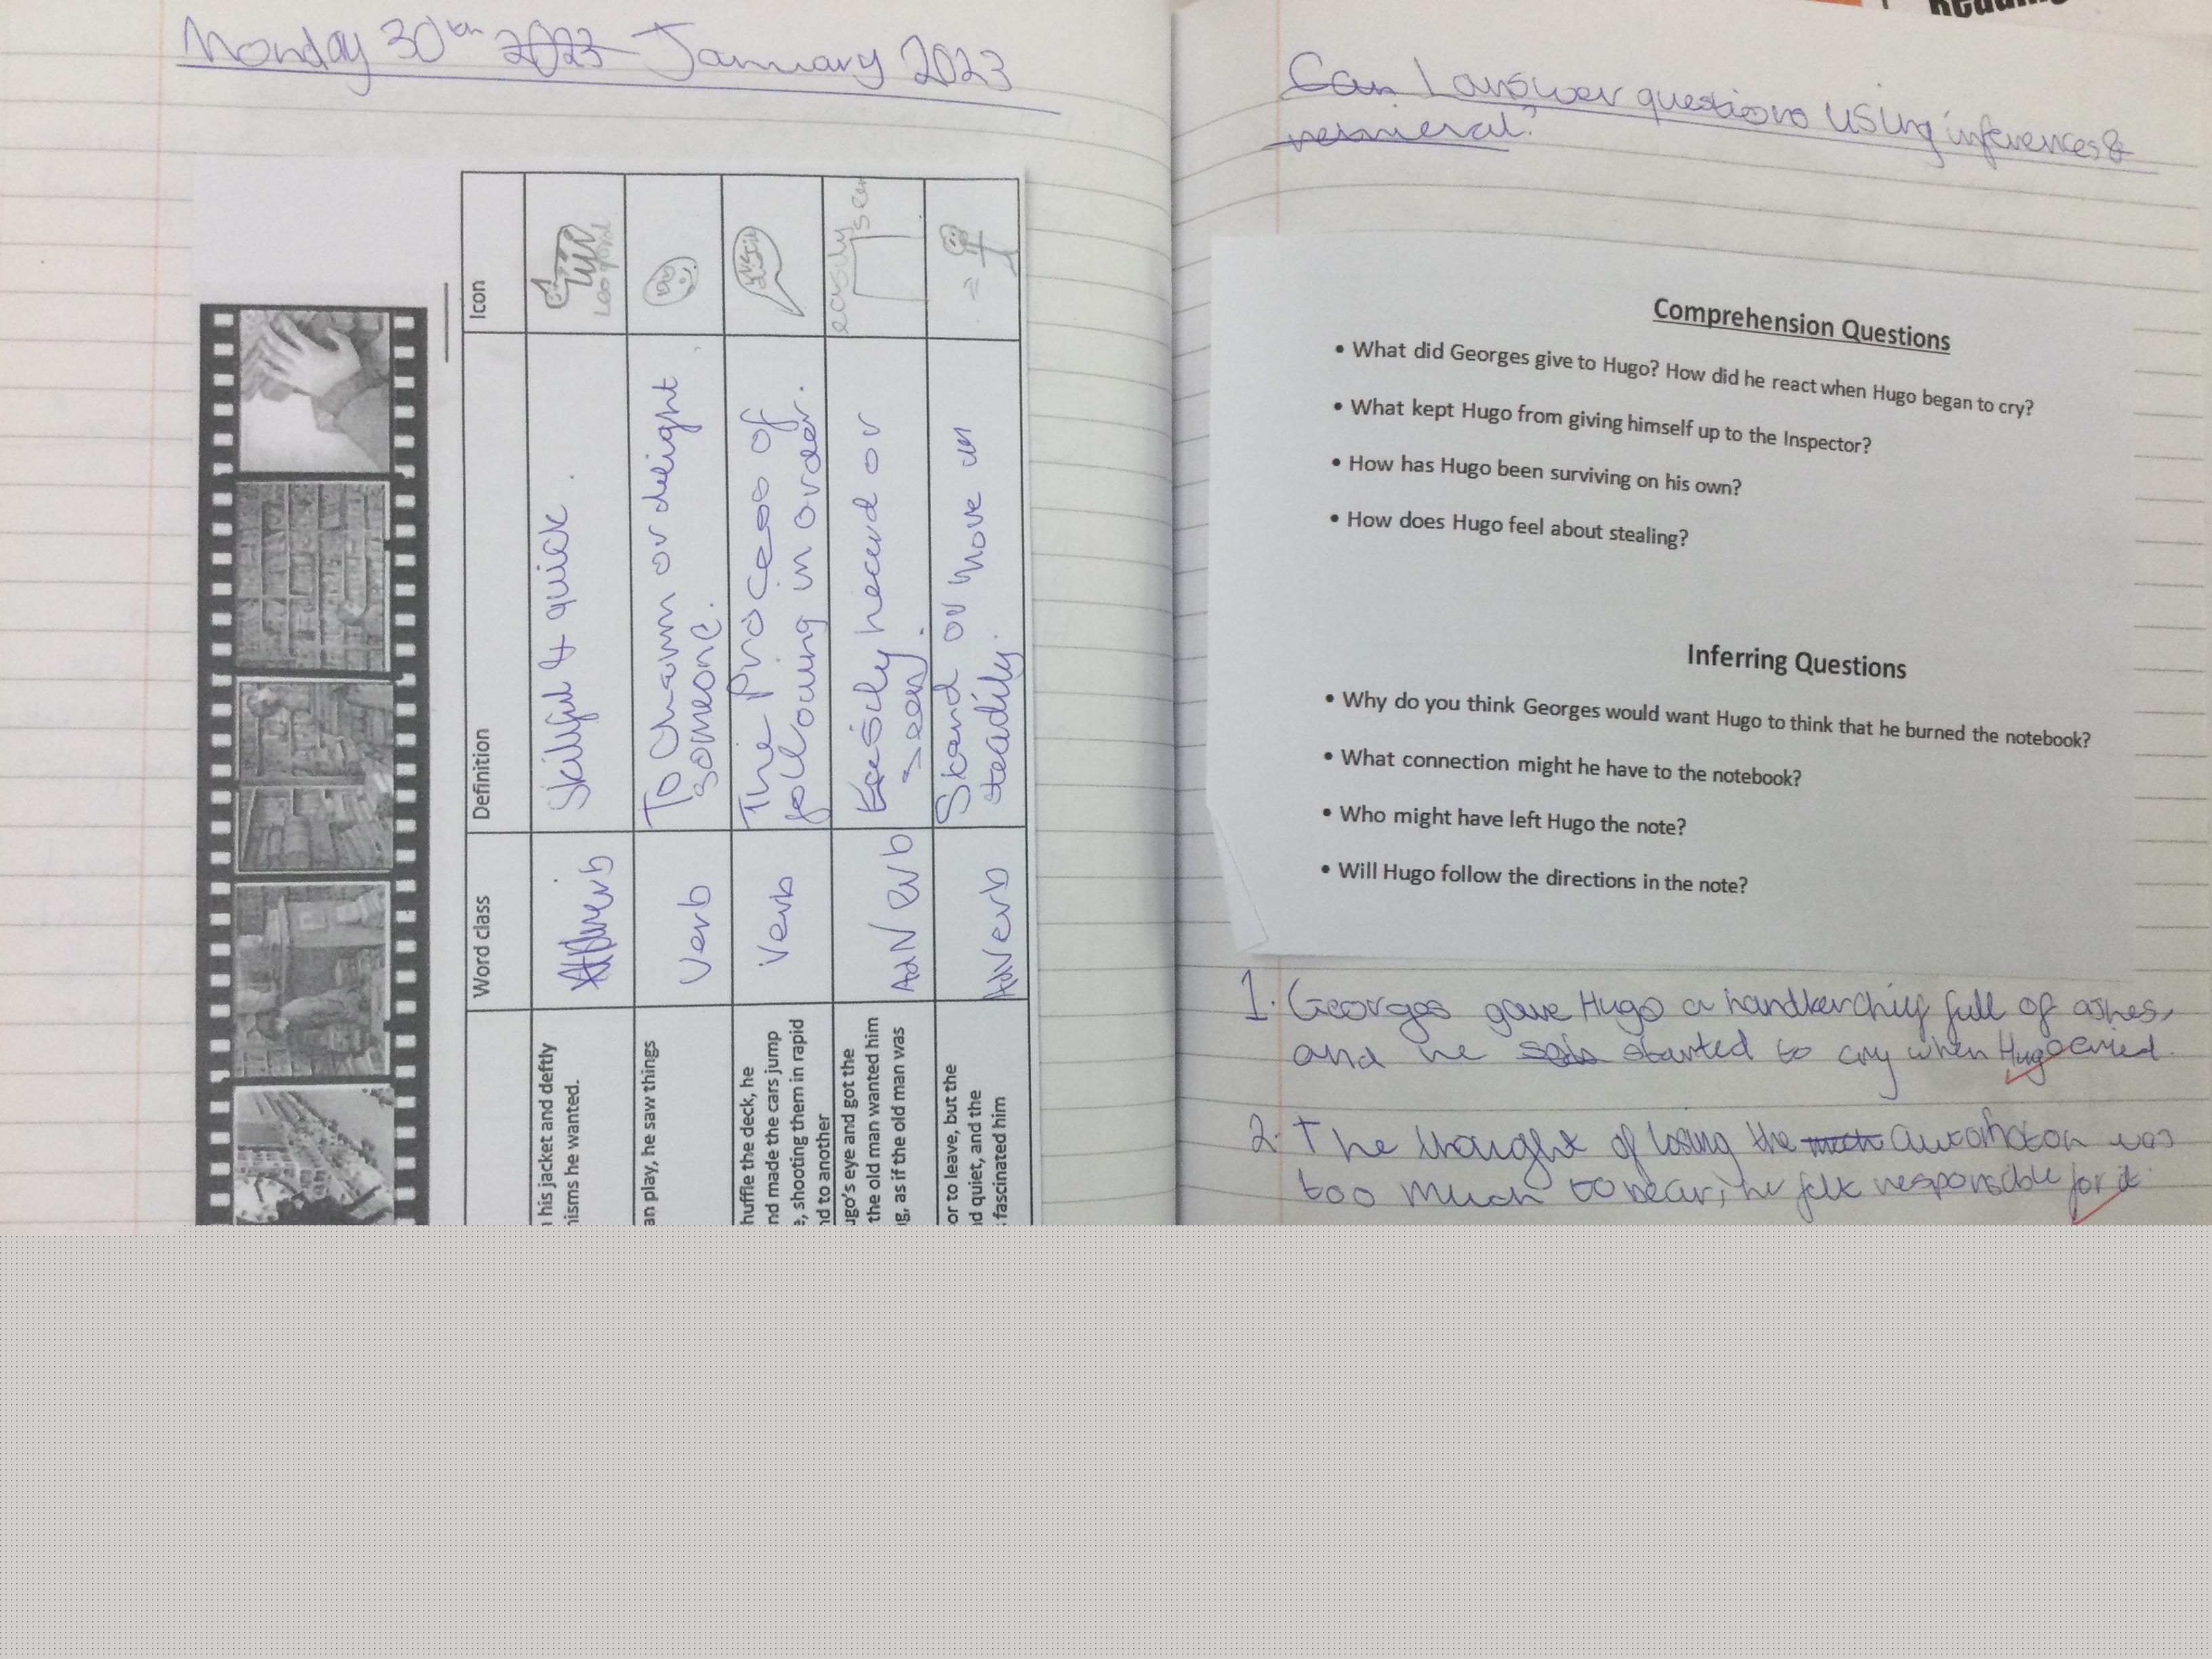 Monday 30th 2023 January 2023
Icon
Definition
Word class
his jacket and deftly
isms he wanted.
Skilful & quick.
Leopard
an play, he saw things
Verb
To charm or delight
someone.
huffle the deck, he
nd made the cars jump
e, shooting them in rapid
nd to another
Verb
The process of
following in order.
ugo's eye and got the
the old man wanted him
g, as if the old man was
AdVerb
Easily heard or
seen.
easily
seen
or to leave, but the
d quiet, and the
fascinated him
AdVerb
Stand or move un
steadily.
=
Can I answer questions using inferences &
retrieval?
Comprehension Questions
• What did Georges give to Hugo? How did he react when Hugo began to cry?
• What kept Hugo from giving himself up to the Inspector?
• How has Hugo been surviving on his own?
• How does Hugo feel about stealing?
Inferring Questions
• Why do you think Georges would want Hugo to think that he burned the notebook?
• What connection might he have to the notebook?
• Who might have left Hugo the note?
• Will Hugo follow the directions in the note?
1. Georges gave Hugo a handkerchif full of ashes,
and he started to cry when Hugo cried.
2. The thought of losing the automaton was
too much to bear, he felt responsible for it.